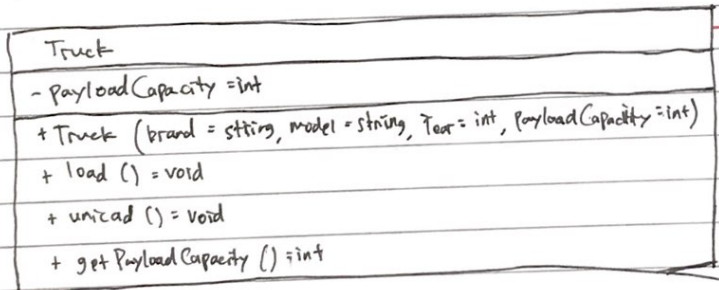 Truck
- payloadCapacity = int
+ Truck (brand = string, model = string, Year = int, payloadCapacity = int)
+ load () = void
+ unicad () = void
+ getPayloadCapacity () = int